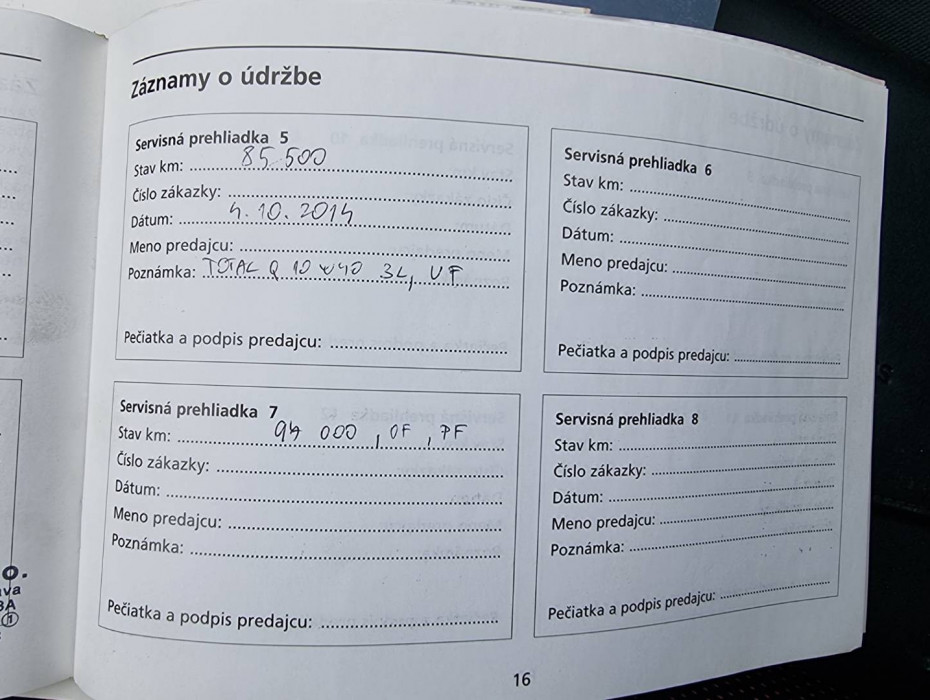 Záznamy o údržbe
Servisná prehliadka 5
Stav km: 85 500
Číslo zákazky:
Dátum: 4.10.2014
Meno predajcu:
Poznámka: TOTAL Q 10W40 3L, VF
Pečiatka a podpis predajcu:
Servisná prehliadka 6
Stav km:
Číslo zákazky:
Dátum:
Meno predajcu:
Poznámka:
Pečiatka a podpis predajcu:
Servisná prehliadka 7
Stav km: 94 000, OF, PF
Číslo zákazky:
Dátum:
Meno predajcu:
Poznámka:
Pečiatka a podpis predajcu:
Servisná prehliadka 8
Stav km:
Číslo zákazky:
Dátum:
Meno predajcu:
Poznámka:
Pečiatka a podpis predajcu:
16